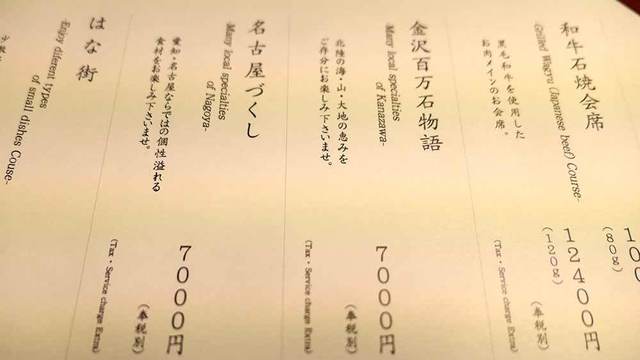 和牛石焼会席
-Grilled Wagyu (Japanese beef) Course-
黒毛和牛を使用した
お肉メインのお会席。
(80g)
12400円
(120g)
(奉税別)
金沢百万石物語
-Many local specialties
of Kanazawa-
北陸の海・山・大地の恵みを
ご存分にお楽しみ下さいませ。
7000円
(奉税別)
(Tax・Service charge Extra)
名古屋づくし
-Many local specialties
of Nagoya-
愛知・名古屋ならではの個性溢れる
食材をお楽しみ下さいませ。
7000円
(奉税別)
(Tax・Service charge Extra)
はな街
-Enjoy diferent types
of small dishes Couse-
(Tax・Service charge Extra)